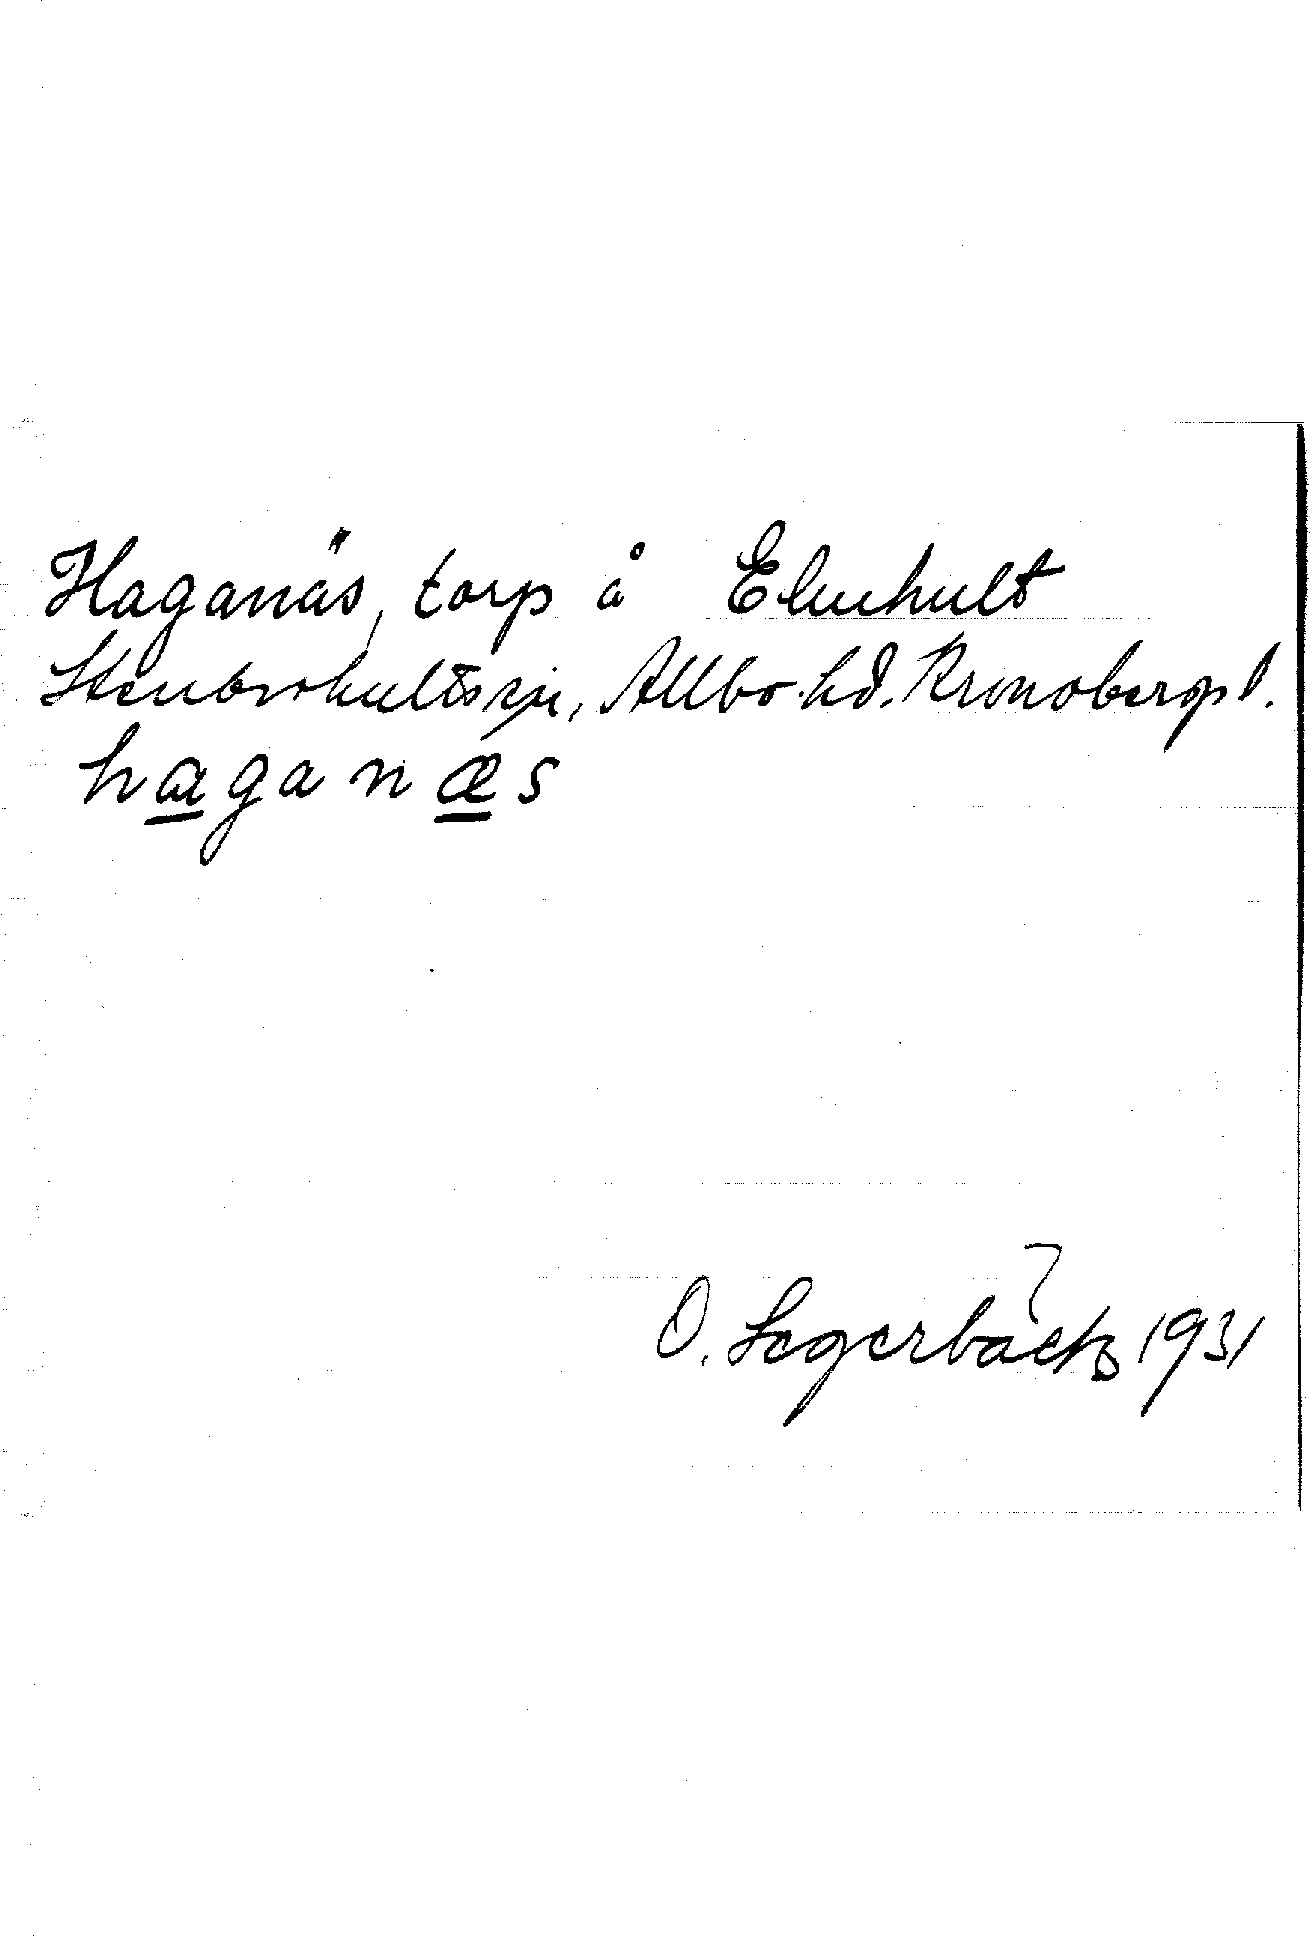 Haganäs, torp å Elmhult
Stenbrohults sn, Allbo hd. Kronobergs l.
haganæs
O. Segerbäck 1931